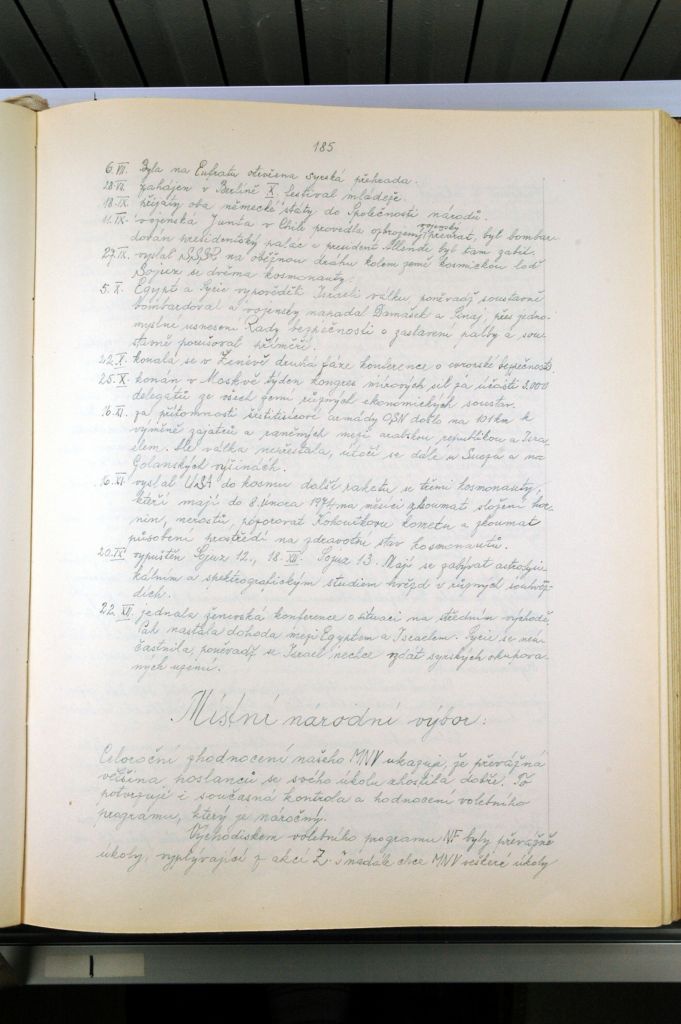 185
6.VII. Byla na Eufratu otevřena syrská přehrada.
28.VII. zahájen v Berlíně X. festival mládeže.
18.IX. přijaty oba německé státy do Společnosti národů.
11.IX. vojenská Junta v Chile provedla ozbrojený vojenský převrat, byl bombar-
dován presidentský palác a president Allende byl tam zabit.
27.IX. vyslal SSSR na oběžnou dráhu kolem země kosmickou loď
Sojuz se dvěma kosmonauty.
5.X. Egypt a Syrie vypověděli Izraeli válku, poněvadž soustavně
bombardoval a vojensky napadal Damašek a Sinaj, přes jedno-
myslné usnesení Rady bezpečnosti o zastavení palby a sou-
stavně porušoval příměří.
22.X. konala se v Ženevě druhá fáze konference o evropské bezpečnosti
25.X. konán v Moskvě týden kongres mírových sil za účasti 3.000
delegátů ze všech zemí různých ekonomických soustav.
16.XI. za přítomnosti šestitisícové armády OSN došlo na 101 km k
výměně zajatců a raněných mezi arabskou republikou a Izra-
elem. Ale válka nepřestala, útočí se dále u Suezu a na
Golanských výšinách.
16.XI. vyslal USA do kosmu další raketu s třemi kosmonauty,
kteří mají do 8. února 1974 na měsíci zkoumat složení hor-
nin, nerostů, pozorovat Kohoutkovu kometu a zkoumat
působení prostředí na zdravotní stav kosmonautů.
20.IX. vypuštěn Sojuz 12., 18.XII. Sojuz 13. Mají se zabývat astrofyzi-
kálním a spektrografickým studiem hvězd v různých souhvěz-
dích.
22.XII. jednala ženevská konference o situaci na středním východě,
Pak nastala dohoda mezi Egyptem a Izraelem. Syrie se nezú-
častnila, poněvadž se Izrael nechce vzdát syrských okupova-
ných území.
Místní národní výbor:
Celoroční zhodnocení našeho MNV ukazuje, že převážná
většina poslanců se svého úkolu zhostila dobře. To
potvrzuje i současná kontrola a hodnocení volebního
programu, který je náročný.
Východiskem volebního programu NF byly převážně
úkoly, vyplývající z akcí Z. I nadále chce MNV veškeré úkoly